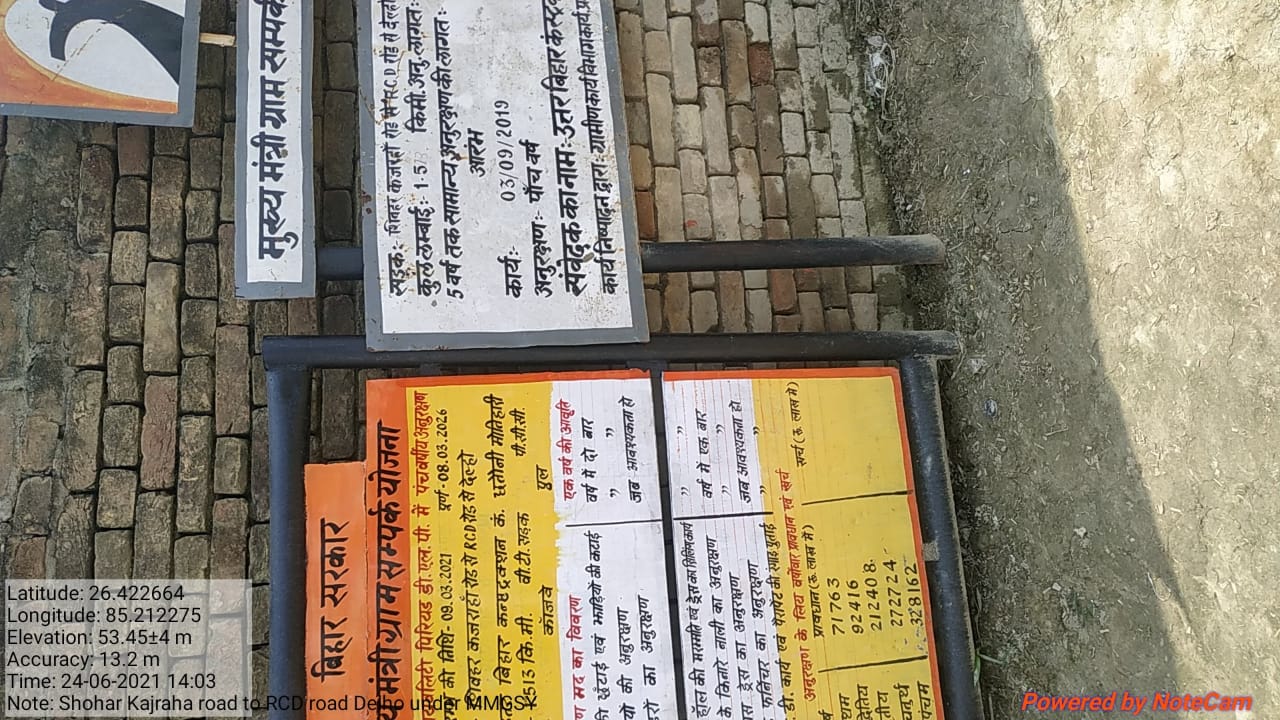 मुख्य मंत्री ग्राम सम्पर्क
सड़क:- शिवहर कजराहाँ रोड से R.C.D रोड से देल्हो
कुल लम्बाई:- 1.5 किमी. अनु. लागत:
5 वर्ष तक सामान्य अनुरक्षण की लागत:
आरंभ
कार्य:- 03/09/2019
अनुरक्षण:- पाँच वर्ष
संवेदक का नाम : उत्तर बिहार कंस्ट्र
कार्य निष्पादन द्वारा : ग्रामीण कार्य विभाग कार्य
बिहार सरकार
मंत्री ग्राम सम्पर्क योजना
पिरियड डी. एल. पी. में पंचवर्षीय अनुरक्षण
की तिथि:- 09.03.2021 पूर्ण - 08.03.2026
शिवहर कजराहाँ रोड से RCD रोड से देल्हो
बिहार कन्स्ट्रक्शन कं. धरौनी मोतिहारी
1.513 कि. मी. बी. टी. सड़क पी. सी. सी.
कॉजवे पुल
मद का विवरण एक वर्ष की आवृति
छँटाई एवं झाड़ियों की कटाई वर्ष में दो बार
की अनुरक्षण " "
का अनुरक्षण जब आवश्यकता हो
हॉल की मरम्मति एवं ड्रेस का शिलिंग कार्य " "
के किनारे नाली का अनुरक्षण वर्ष में एक बार
ड्रेस का अनुरक्षण " "
फर्निचर का अनुरक्षण जब आवश्यकता हो
डी. कार्य एवं पैरापिट की रंगाई पुताई " "
अनुरक्षण के लिए वर्षवार प्रावधान एवं खर्च
प्रावधान (रू. लाख में) खर्च (रू. लाख में)
71763
92416
212408.
272724
328162
Latitude: 26.422664
Longitude: 85.212275
Elevation: 53.45±4 m
Accuracy: 13.2 m
Time: 24-06-2021 14:03
Note: Shohar Kajraha road to RCD road Delho under MMGSY
Powered by NoteCam